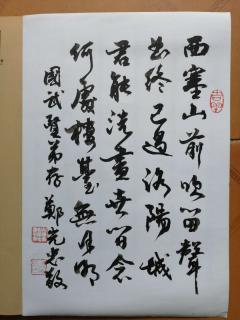 西塞山前吹笛聲
曲終已過洛陽城
君能洗盡世間念
何處樓臺無月明
國武賢弟存 鄭光忠